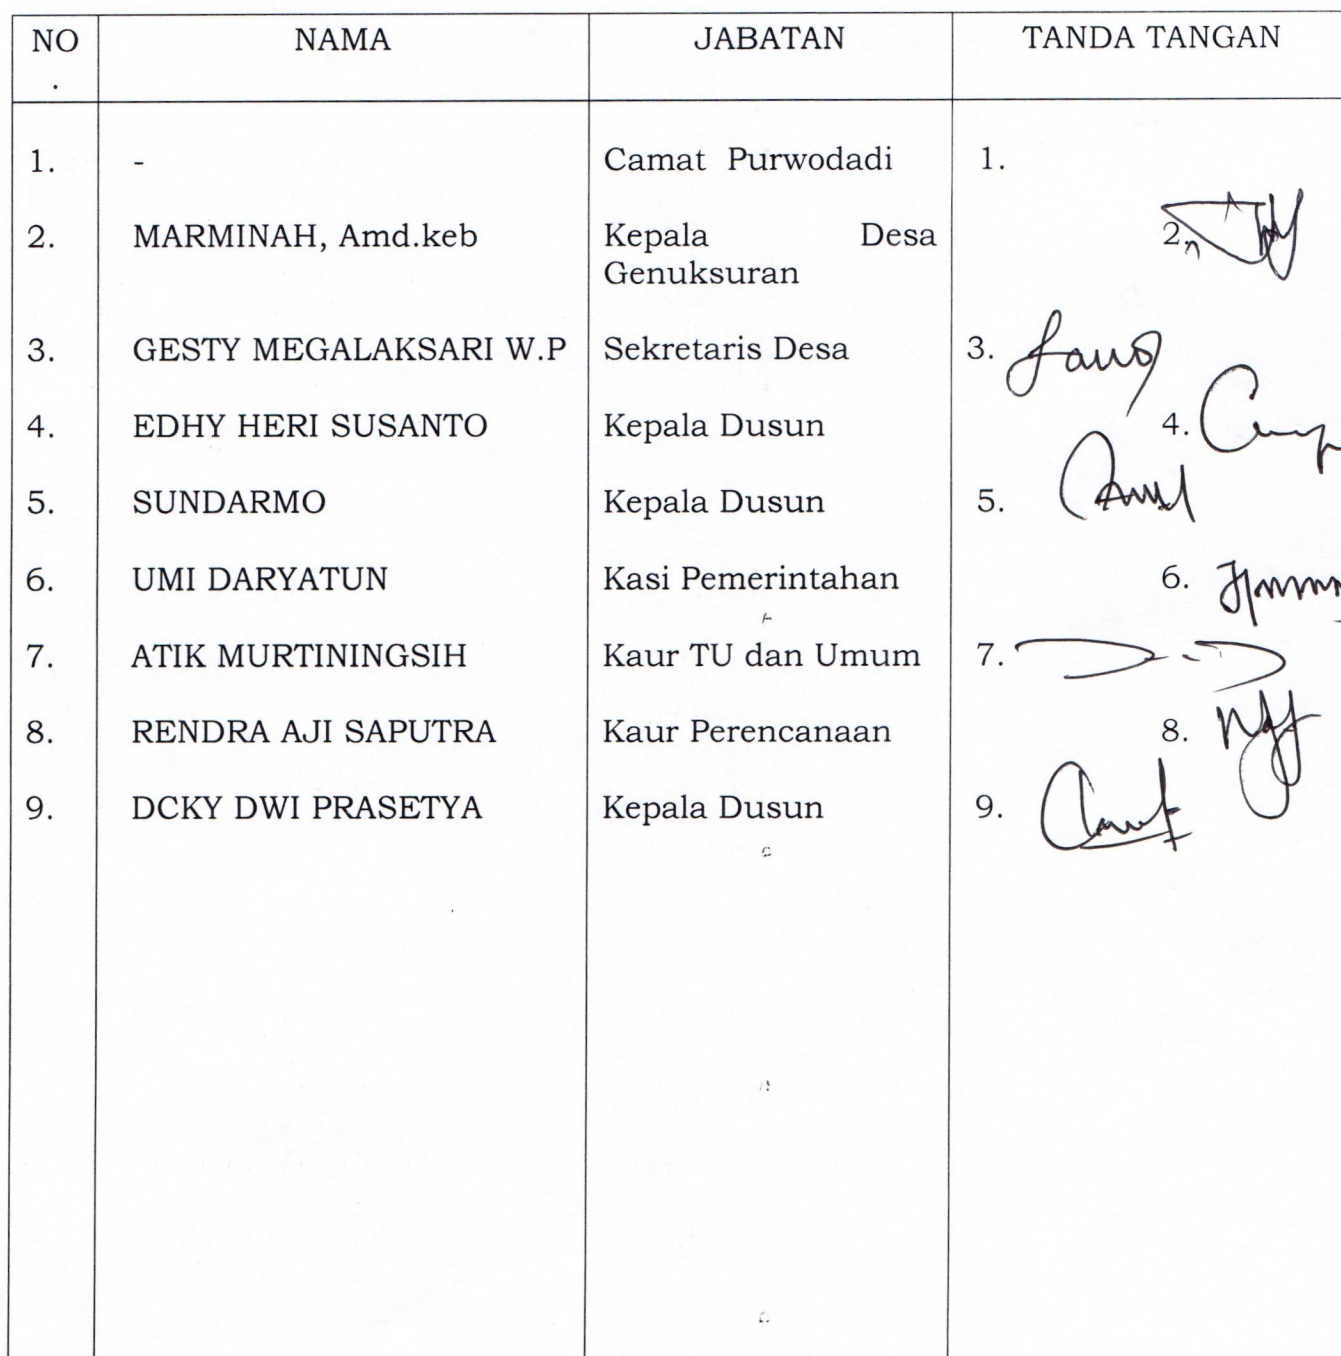 NO . NAMA JABATAN TANDA TANGAN
1. - Camat Purwodadi 1.
2. MARMINAH, Amd.keb Kepala Desa 2.
Genuksuran
3. GESTY MEGALAKSARI W.P Sekretaris Desa 3.
4. EDHY HERI SUSANTO Kepala Dusun 4.
5. SUNDARMO Kepala Dusun 5.
6. UMI DARYATUN Kasi Pemerintahan 6.
7. ATIK MURTININGSIH Kaur TU dan Umum 7.
8. RENDRA AJI SAPUTRA Kaur Perencanaan 8.
9. DCKY DWI PRASETYA Kepala Dusun 9.